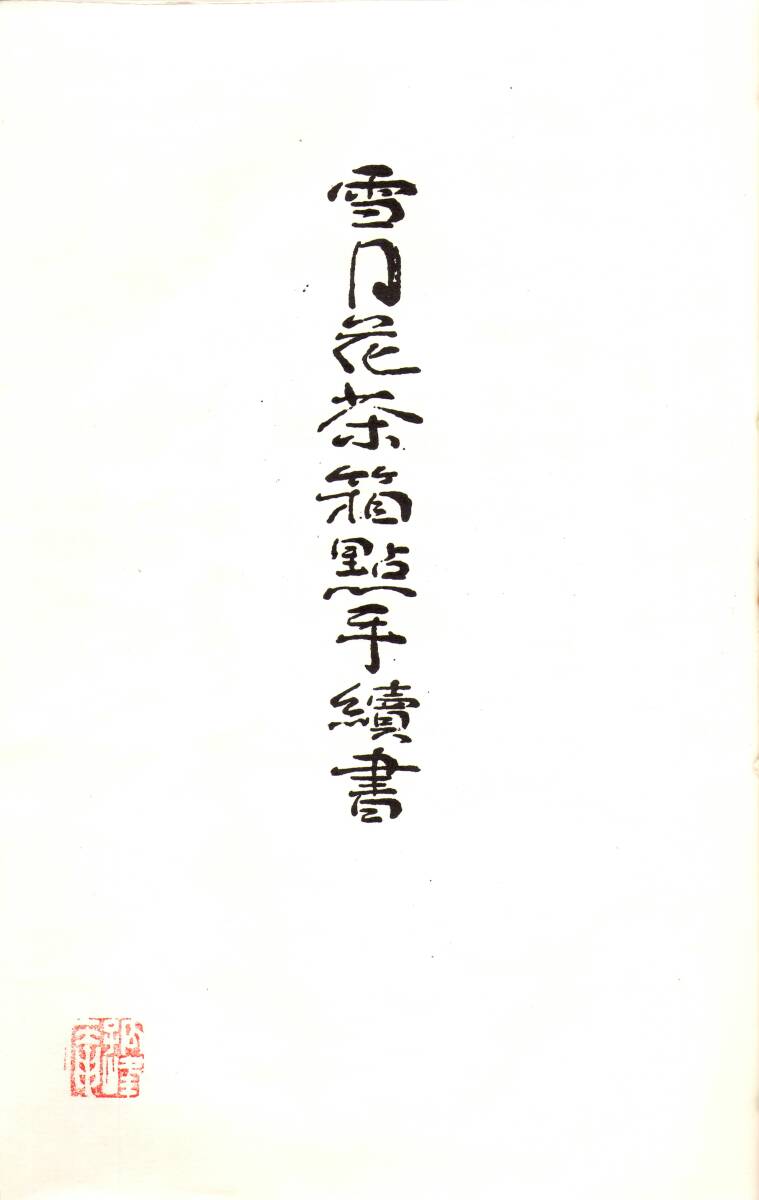 雪月花茶箱點手續書